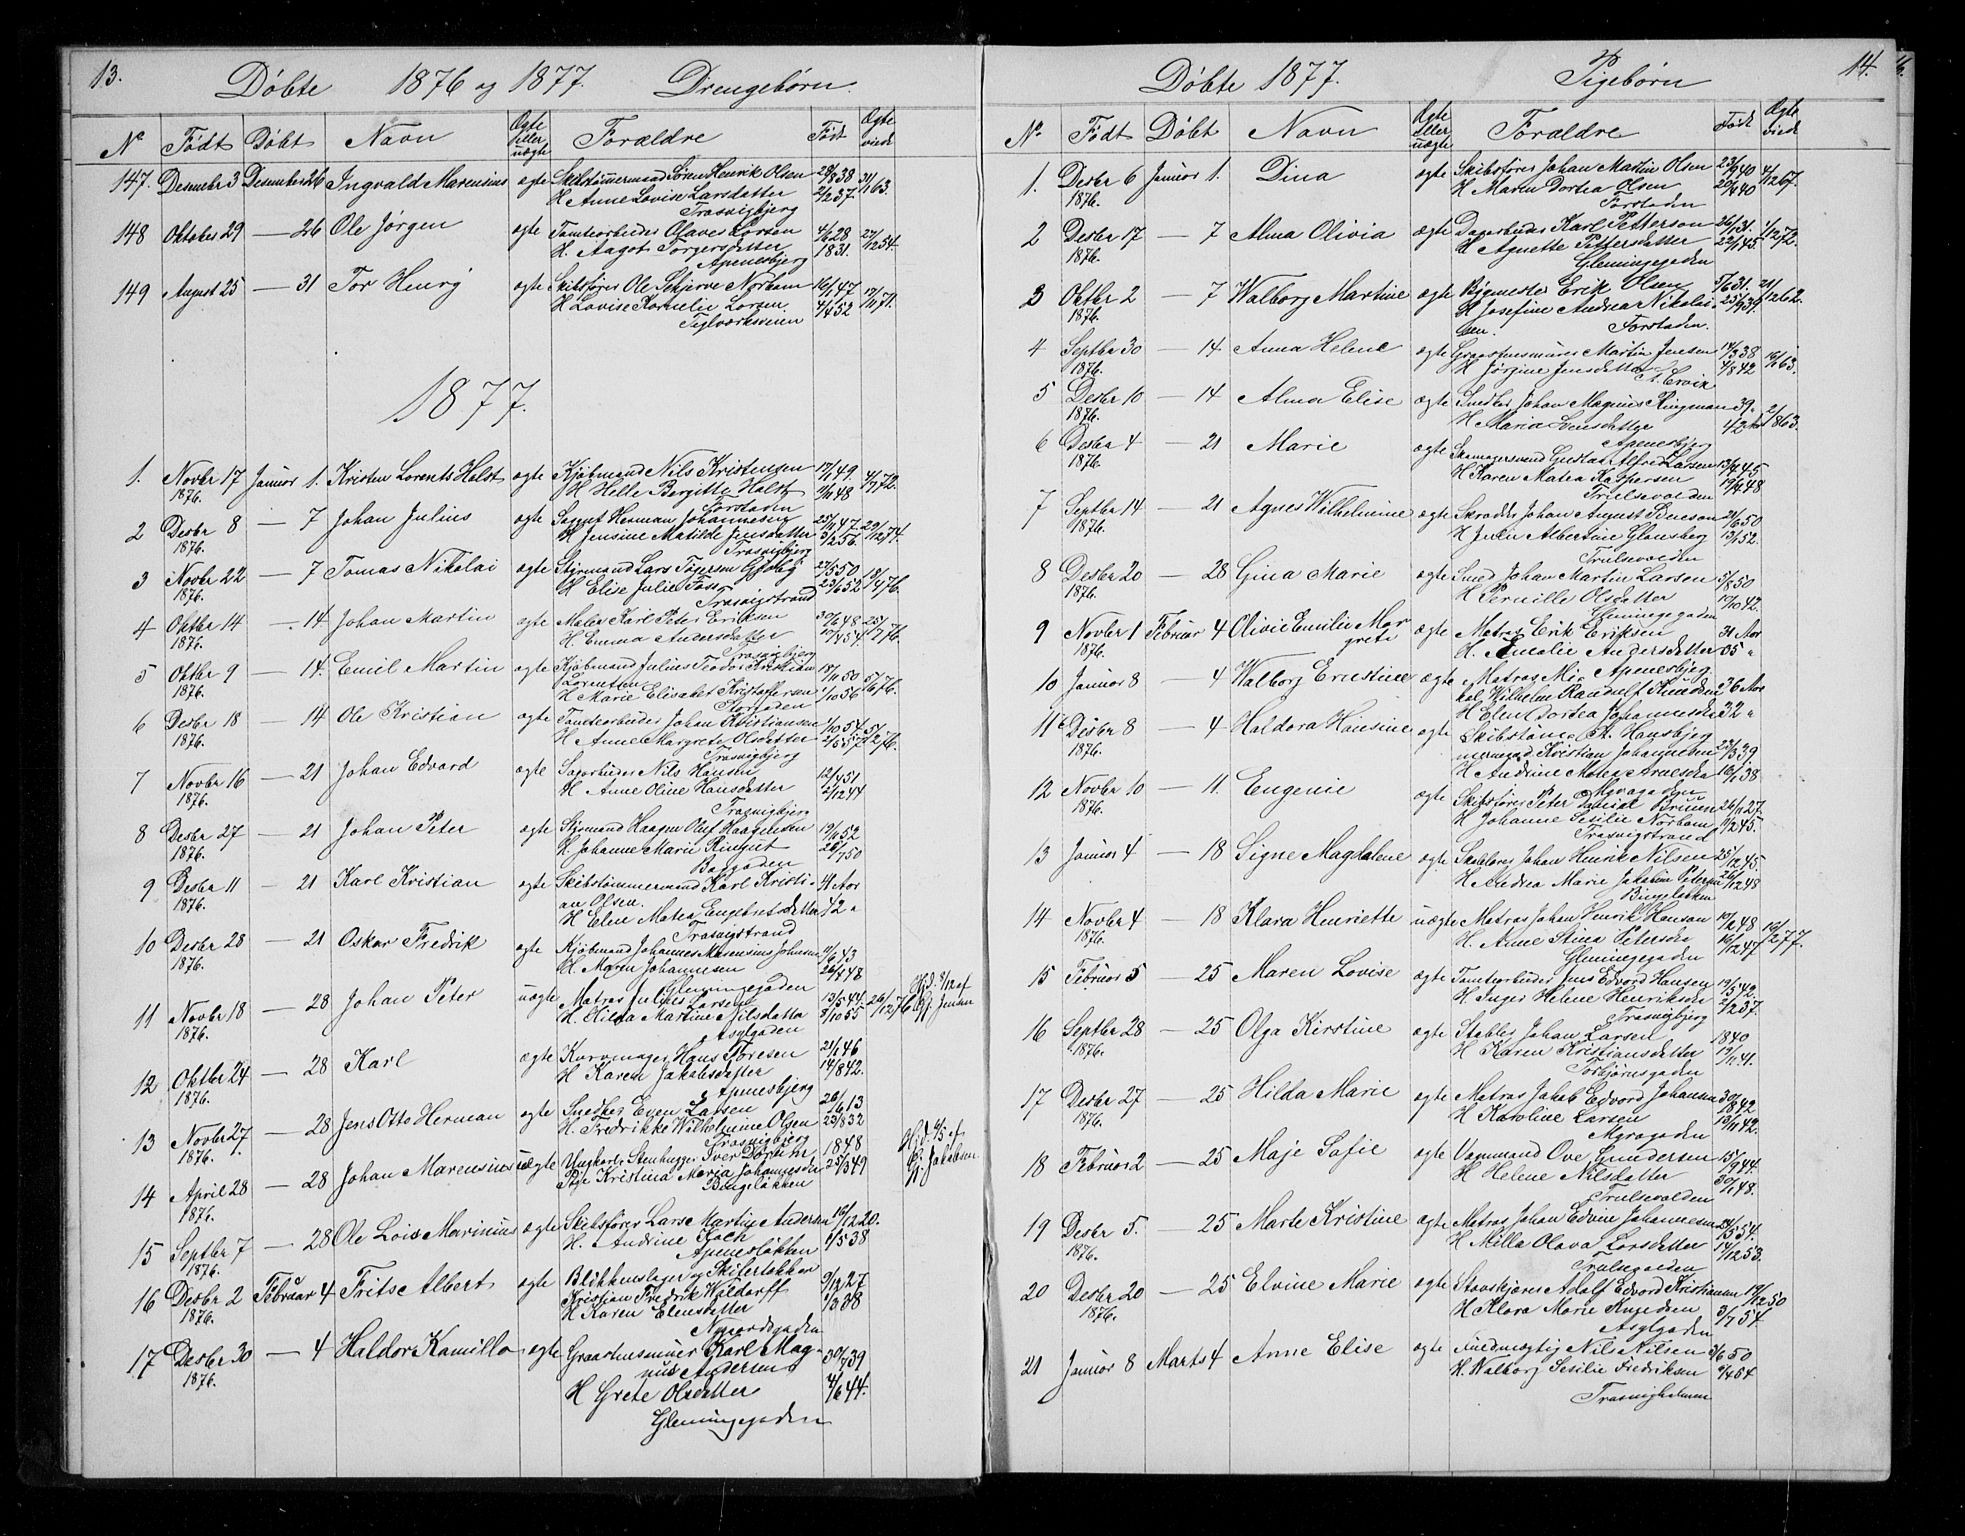 13.
Döbte 1876 og 1877. Drengebørn.
No Födt Döbt Navn Ægte eller uægte Forældre Födt Ægte viede
147. Desember 3 Desember 26 Ingvald Marensius ægte Skibstømmermand Sören Henrik Olsen 29/8 38 31/1 63.
H Anne Lovise Larsdatter 2/2 37.
Trosvigbjerg
148 Oktober 29 — 26 Ole Jørgen ægte Tomtearbeider Olaves Larsen 4/6 28 27/12 54.
H. Aagot Torgersdatter 1831.
Apenesbjerg
149 August 25 — 31 Tor Henry ægte Skibsfører Ole Schjerve Norbom 16/1 47 17/11 71.
H Lovise Kornelie Lorsen 4/4 52
Teglværksveien
1877.
1. Novbr 17 Januar 1. Kristen Lorents Holst ægte Kjøbmand Nils Kristensen 17/1 49. 4/7 72.
1876. H Helle Bergitte Holst 11/11 48
Forstaden
2 Desbr 8 — 7 Johan Julius ægte Sagmst Herman Johannesen 25/11 47. 29/12 74.
1876. H Jensine Matilde Jensdatter 3/2 56.
Trosvigbjerg
3 Novbr 22 — 7 Tomas Nikolai ægte Styrmand Lars Tögersen Gjöby 27/5 50 18/4 76.
1876. H Elise Julie Foss 23/6 52
Trosvigstrand
4 Oktbr 14 — 14 Johan Martin ægte Maler Karl Peter Eriksen 30/6 48 25/7 76.
1876. H. Emma Andersdatter 17/4 54.
Trosvigbjerg
5 Oktbr 9 — 14. Emil Martin ægte Kjøbmand Julius Teodor Kristian 18/11 50 5/6 76.
1876. Lorentsen
H Marie Elisabet Kristoffersen 4/10 56
Storgaden
6 Desbr 18 — 14 Ole Kristian ægte Tomtearbeider Johan Kristiansen 1/10 54. 5/12 76.
1876. H Anne Margrete Olsdatter 2/5 57
Trosvigbjerg
7 Novbr 16 — 21 Johan Edvard ægte Sagarbeider Nils Hansen 12/4 51
1876. H Anne Oline Hansdatter 2/12 44
Trosvigbjerg
8 Desbr 27 — 21 Johan Peter ægte Styrmand Haagen Oluf Haagensen 19/11 52
1876. H. Johanne Marie Ringut 26/7 50
Baggaden
9 Desbr 11 — 21 Karl Kristian ægte Skibstømmermand Karl Kristi- 41 Aar
1876. an Olsen.
H Elen Matea Engebretsdatter 42 "
Trosvigstrand
10 Desbr 28 — 21 Oskar Fredrik ægte Kjøbmand Johannes Marensius Johnsen 11/6 43
1876. H. Maren Johannesen 26/1 48
Glemmegaden
11 Novbr 18 — 28 Johan Peter uægte Matros Julius Larsen 13/5 44. 26/12 76 Hj.d. 8/12 af
1876. H. Hilda Martine Nilsdatter 8/10 55
Asylgaden
12 Oktbr 24 — 28 Karl ægte Kurvmager Hans Toresen 21/1 46
1876. H Karen Jakobsdatter 14/8 42.
Apenesbjerg
13 Novbr 27. — 28 Jens Otto Herman ægte Snedker Even Larsen 26/6 13
1876. H. Fredrikke Wilhelmine Olsen 23/8 32
Trosvigbjerg
14 April 28 — 28 Johan Marensius uægte Ungkarl Stenhugger Iver 1848 Hj.d. 9/5 af
1876. Pige Kristina Maria Johannesdtr 25/3 49 Jakobsen
Bingeløkken
15 Septbr 7 — 28 Ole Lois Marinius ægte Skibsfører Lars Martin Andersen 16/12 20.
1876. H. Andrine Koch 1/5 38
Apenesløkken
16 Desbr 2 Februar 4 Frits Albert ægte Blikkenslager og Skiltetækker 9/12 27
1876. Kristian Fredrik Waldorff
H Karen Elensdatter 1/3 38
Nygaardsgaden
17 Desbr 30 — 4 Haldor Kamillo ægte Graastensmurer Karl Mag- 30/7 39
1876. nus Andersen
H Grete Olsdatter 4/6 44.
Glemmegaden
14.
Döbte 1877. Pigebørn
No. Födt Döbt Navn Ægte eller uægte Forældre Födt Ægte viede
1. Desbr 6 Januar 1. Dina ægte Skibsfører Johan Martin Olsen 23/9 40 4/12 67.
1876. H Maren Dortea Olsen 20/4 40
Forstaden
2 Desbr 17 — 7 Alma Olivia ægte Dagarbeider Karl Petterson 26/1 31. 1/12 72.
1876. H Agnette Pettersdatter 22/4 45.
Glemmegaden
3 Oktbr 2 — 7 Walborg Martine ægte Bÿgmester Erik Olsen 5/6 31. 21/12 62.
1876. H Josefine Andrea Nikolai- 25/9 39
sen. Forstaden.
4 Septbr 30 — 14 Anna Helene ægte Graastensmurer Martin Jensen 14/3 38 16/1 63.
1876. H Jørgine Jensdatter 4/8 42
St. Croix
5 Desbr 10 — 14 Alma Elise ægte Snedker Johan Magnus Ringman 39 " 2/8 63.
1876. H Maria Svensdatter 42 Aar
Apenesbjerg
6 Desbr 4 — 21 Marie ægte Skomagersvend Gustav Alfred Larsen 13/4 45
1876. H Karen Matea Kaspersen 19/4 48
Trulsevolden
7 Septbr 14 — 21 Agnes Wilhelmine ægte Skrædder Johan August Benson 24/6 50
1876. H Julie Albertine Glansberg 13/1 52.
Trulsevolden
8 Desbr 20 — 28 Gina Marie ægte Smed Johan Martin Larsen 5/8 50
1876. H Pernille Olsdatter 17/10 42.
Glemmegaden
9 Novbr 1 Februar 4 Olivie Emilie Mar ægte Matros Erik Eriksen 31 Aar
1876. grete H. Amalie Andersdatter 35 "
Apenesbjerg
10 Januar 8 — 4 Walborg Ernstine ægte Matros Mi-
kal Wilhelm Randulf Knudsen 36 Aar
H Elen Dortea Johannesdtr 32 "
St. Hansbjerg
11 Desbr 8 — 4 Haldora Hansine ægte Skibstøm-
1876. mermand Kristian Johannesen 22/5 39
H Andrine Matea Arnesdtr 16/1 38
Agragaden
12 Novbr 10 — 11. Eugenie ægte Skibsfører Peter Daniel Bruun 26/11 27.
1876. H Johanne Sesilie Norbom 11/2 45.
Trosvigstrand
13 Januar 4 — 18 Signe Magdalene ægte Skolelærer Johan Henrik Nilsen 25/12 45.
H. Andrea Marie Jakobine Petersen 26/12 48
Bingeløkken
14 Novbr 4 — 18 Klara Henriette uægte Matros Johan Henrik Hansen 10/12 48 10/2 77.
1876. H. Anne Stina Petersdtr 16/12 47
Glemmegaden
15 Februar 5 — 25 Maren Lovise ægte Tomtearbeider Jens Edvard Hansen 19/5 42.
H. Inger Helene Henriksdtr 2/2 37.
Trosvigbjerg
16 Septbr 28 — 25 Olga Kirstine ægte Stabler Johan Larsen 1840
1876. H Karen Kristiansdatter 19/11 41.
Torbjørnsgaden
17 Desbr 27 — 25 Hilda Marie ægte Matros Jakob Edvard Johansen 30/1 42
1876. H Karoline Larsen 13/11 42.
Agragaden
18 Februar 2 — 25 Maje Sofie ægte Vognmand Ove Gundersen 15/9 44.
H Helene Nilsdatter 30/1 48.
Trulsevolden
19 Desbr 5. — 25 Marte Kristine ægte Matros Johan Edvin Johannesen 24/3 54.
1876. H. Milla Olava Larsdatter 14/12 53.
Trulsegaden
20 Desbr 20 — 25 Elvine Marie ægte Adolf Edvard Kristiansen 19/12 50
1876. H Klara Marie Knudsen 3/7 54
Asylgaden
21 Januar 8 Marts 4 Anne Elise ægte Nils Nilsen 3/6 50
H. Walborg Sesilie Fredriksen 9/4 54
Trosvigholmen